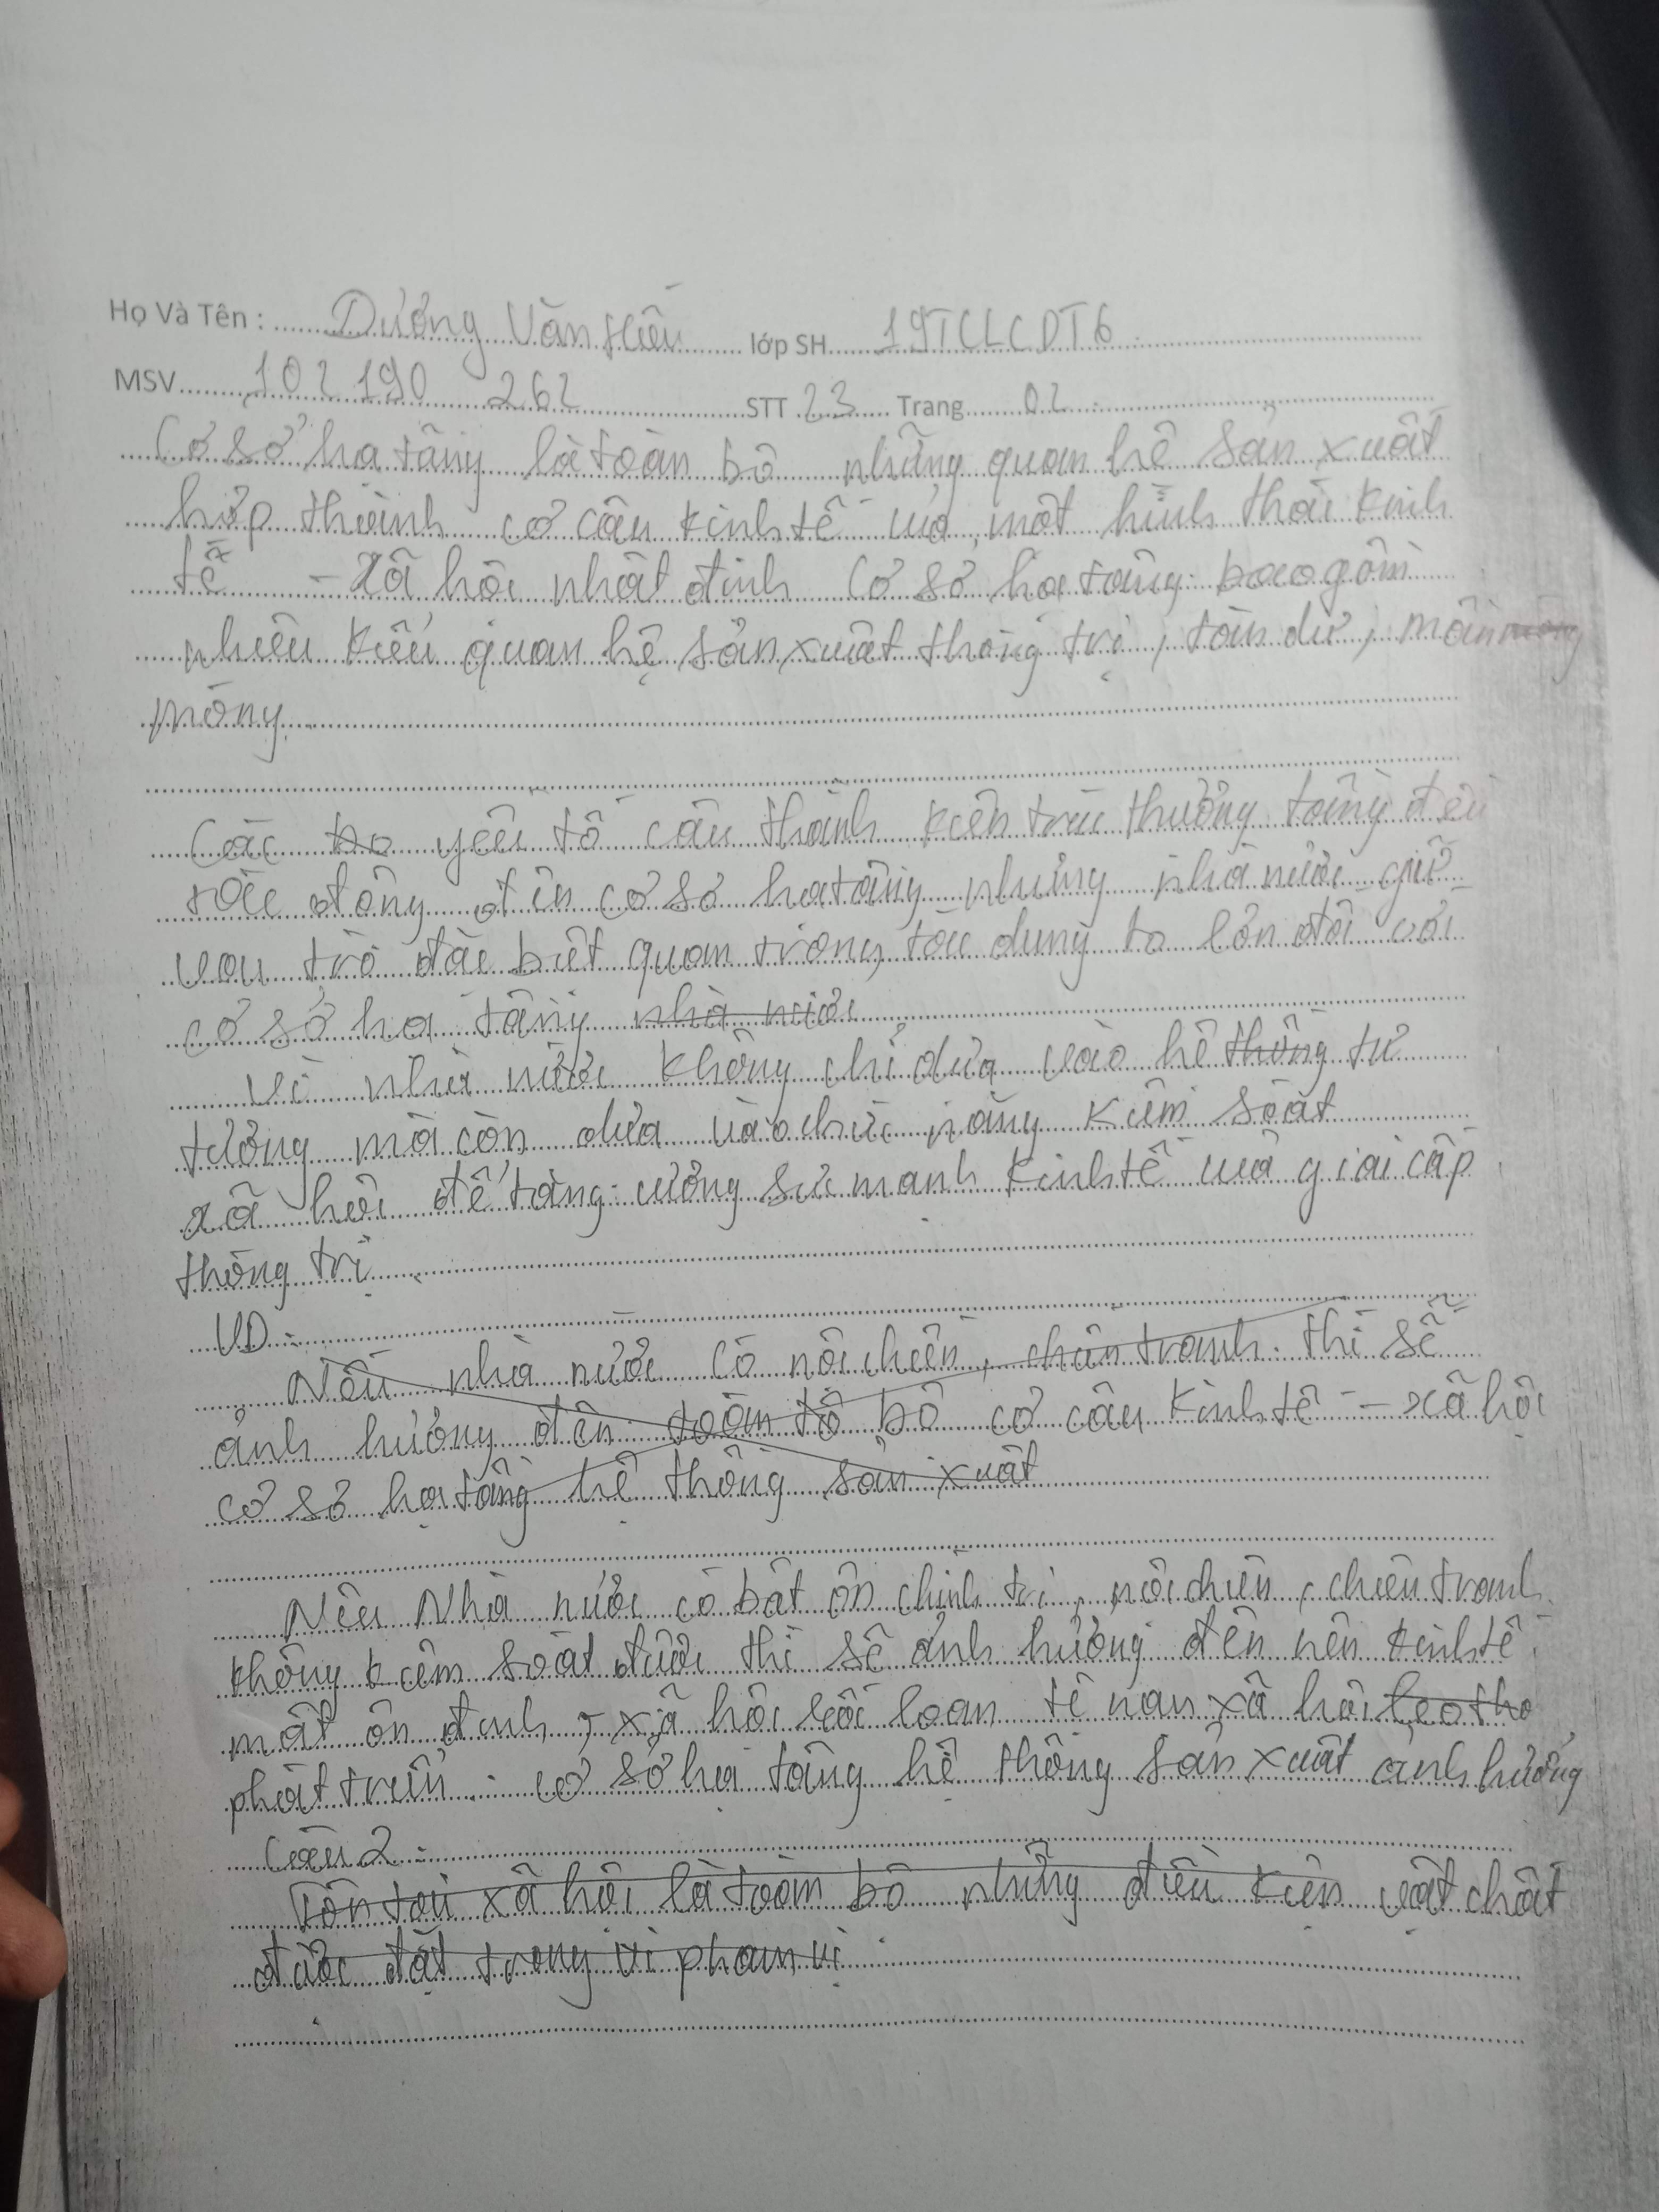 Họ Và Tên : Dương Văn Hiếu lớp SH 19TCLCDT6
MSV 102 190 262 STT 23 Trang 02
Cơ sở hạ tầng là toàn bộ những quan hệ sản xuất
hợp thành cơ cấu kinh tế của một hình thái kinh
tế - xã hội nhất định Cơ sở hạ tầng bao gồm
nhiều kiểu quan hệ sản xuất thống trị, tàn dư, mầm mống
mống
Các yếu tố cấu thành kiến trúc thượng tầng đều
tác động đến cơ sở hạ tầng nhưng nhà nước giữ
vai trò đặc biệt quan trọng, tác dụng to lớn đối với
cơ sở hạ tầng nhà nước
Vì nhà nước không chỉ dựa vào hệ thống tư
tưởng mà còn dựa vào chức năng kiểm soát
xã hội để tăng cường sức mạnh kinh tế của giai cấp
thống trị
VD:
Nếu nhà nước có nội chiến, chiến tranh thì sẽ
ảnh hưởng đến toàn bộ cơ cấu kinh tế - xã hội
cơ sở hạ tầng hệ thống sản xuất
Nếu Nhà nước có bất ổn chính trị, nội chiến, chiến tranh
không kiểm soát được thì sẽ ảnh hưởng đến nền kinh tế
mất ổn định, xã hội rối loạn tệ nạn xã hội
phát triển. cơ sở hạ tầng hệ thống sản xuất ảnh hưởng
Câu 2:
Tồn tại xã hội là toàn bộ những điều kiện vật chất
được đặt trong phạm vi